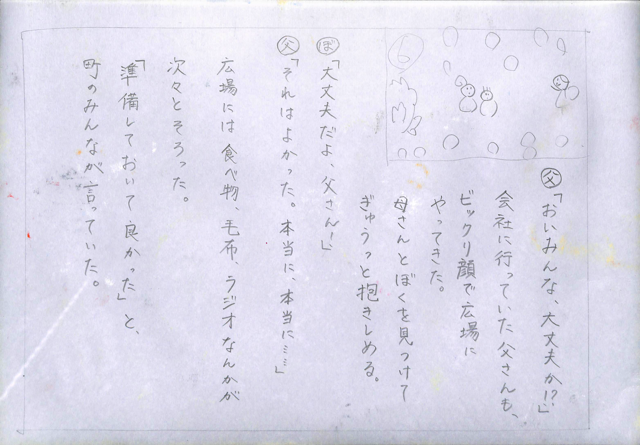 6
父「おいみんな、大丈夫か!?」
会社に行っていた父さんも、
ビックリ顔で広場に
やってきた。
母さんとぼくを見つけて
ぎゅうっと抱きしめる。
ぼ「大丈夫だよ、父さん!」
父「それはよかった。本当に、本当に……」
広場には食べ物、毛布、ラジオなんかが
次々とそろった。
「準備しておいて良かった」と、
町のみんなが言っていた。